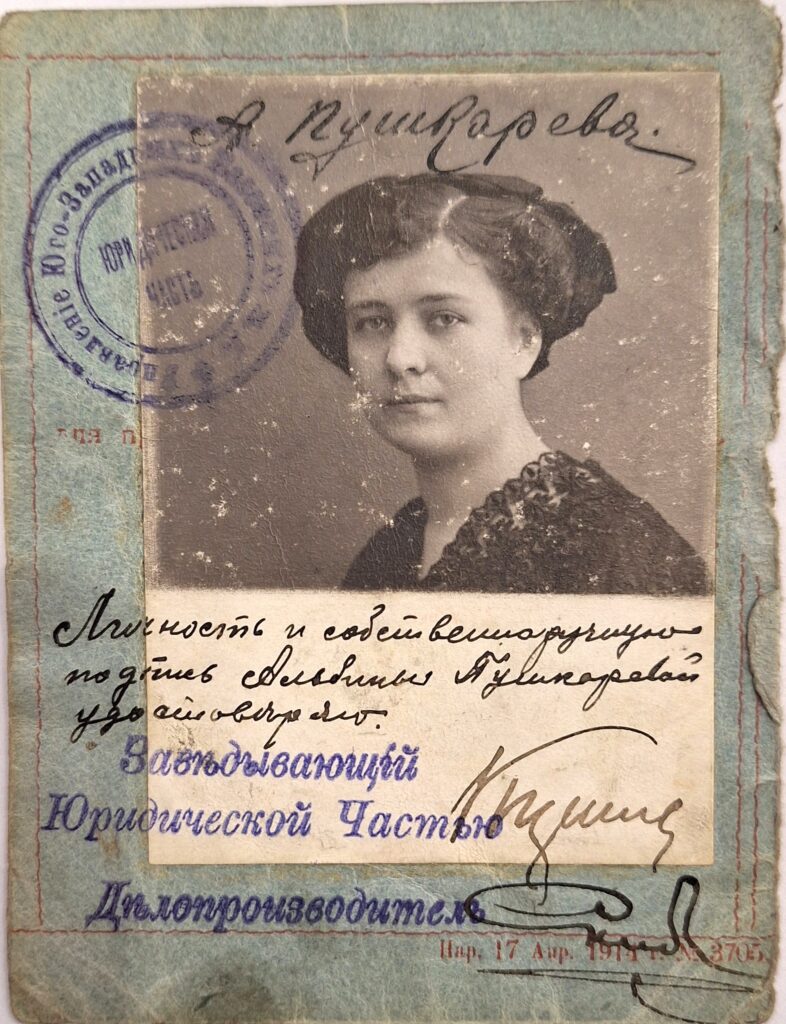 А. Пушкарева.
Управленіе Юго-Западныхъ
ЮРИДИЧЕСКАЯ
ЧАСТЬ
для п
Личность и собственноручную
подпись Альбины Пушкаревой
удостовѣряю.
Завѣдывающій
Юридической Частью
Дѣлопроизводитель
Нар. 17 Апр. 1914 г. № 3705.